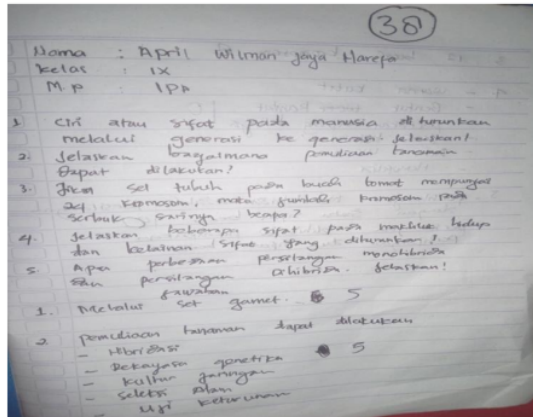 38
Nama : April Wilman Jaya Harefa
Kelas : IX
M P : IPA
1 Ciri atau sifat pada manusia di turunkan
melalui generasi ke generasi. Jelaskan!
2. Jelaskan bagaimana pemuliaan tanaman
dapat dilakukan?
3. Jika sel tubuh pada buah tomat mempunyai
24 kromosom, maka jumlah kromosom pada
serbuk sarinya berapa?
4. Jelaskan beberapa sifat pada makhluk hidup
dan kelainan sifat yang diturunkan!
5. Apa perbedaan persilangan monohibrida
dan persilangan dihibrida. Jelaskan!
Jawaban
1. Melalui sel gamet. 5
2. Pemuliaan tanaman dapat dilakukan
- Hibridasi 5
- Rekayasa genetika
- Kultur jaringan
- Seleksi alam
- Uji keturunan